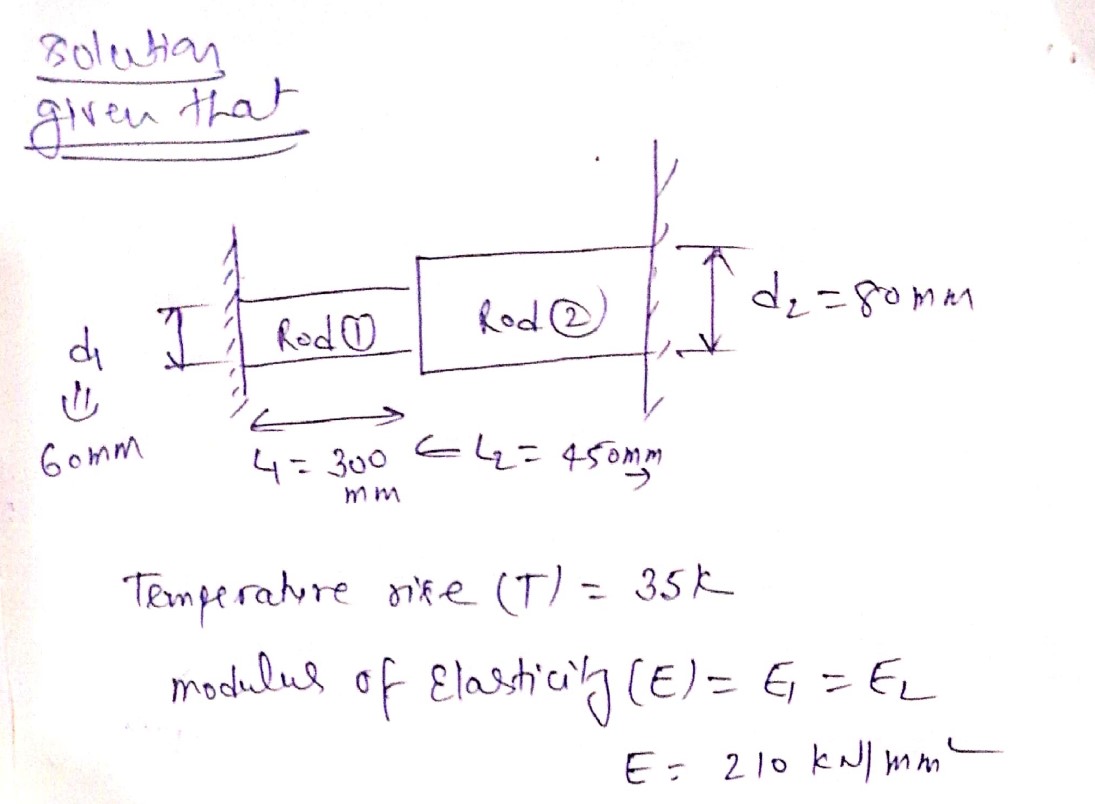 Solution
given that
Rod ①
Rod ②
d₂ = 80mm
d₁
60mm
L₁ = 300
mm
L₂ = 450mm
Temperature rise (T) = 35k
modulus of Elasticity (E) = E₁ = E₂
E = 210 kN/mm²